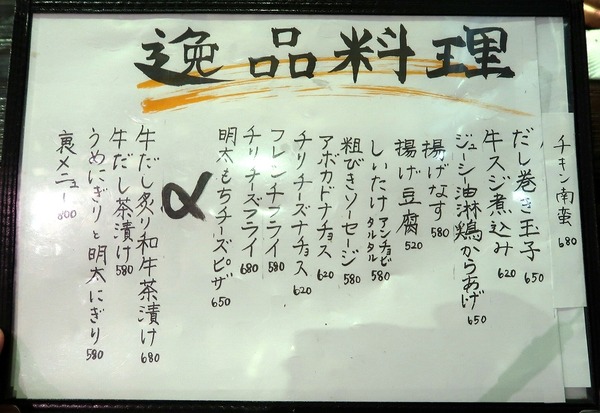 逸品料理
チキン南蛮 680
だし巻き玉子 650
牛スジ煮込み 620
ジューシ油淋鶏からあげ 650
揚げなす 580
揚げ豆腐 520
しいたけアンチョビタルタル 580
粗びきソーセージ 580
アボカドナチョス 620
チリチーズナチョス 620
フレンチフライ 580
チリチーズフライ 680
明太もちチーズピザ 650
α
牛だし炙り和牛茶漬け 680
牛だし茶漬け 580
うめにぎりと明太にぎり 580
裏メニュー 800